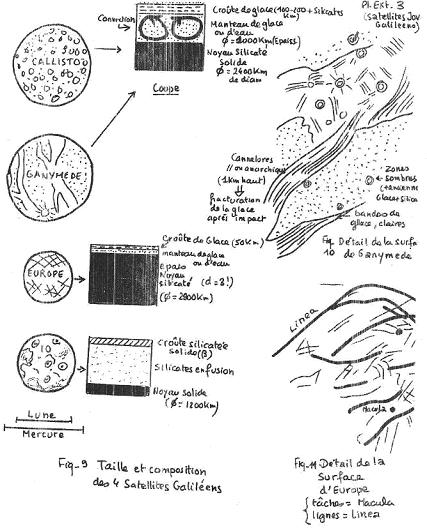 Pl. Ext. 3
(satellites Jov
Galiléens)
Convection
Croûte de glace (100-200 + Silicates
Km)
Manteau de glace
ou d'eau
Φ = 1000 Km (Epaiss.)
Noyau Silicaté
Solide
Φ = 2400 Km
de diam
Coupe
CALLISTO
GANYMEDE
Cannelures
// ou anarchiques
(1 Km haut)
fracturation
de la glace
après impact
Zones
sombres
(+ anciennes
Glace + Silica
bandes de
glace, claires
Fig. Détail de la Surfa
10 de Ganymede
EUROPE
Croûte de Glace (50 Km)
manteau de glace
ou d'eau
Epais
Noyau
silicaté (d = 3!)
(Φ = 2800 Km)
IO
Croûte silicatée
solide (β)
Silicates en fusion
Noyau solide
(Φ = 1200 Km)
Lune
Mercure
Linea
Macula
Fig. 9 Taille et composition
des 4 Satellites Galiléens
Fig. 11 Détail de la
Surface
d'Europe
tâches = Macula
lignes = Linea